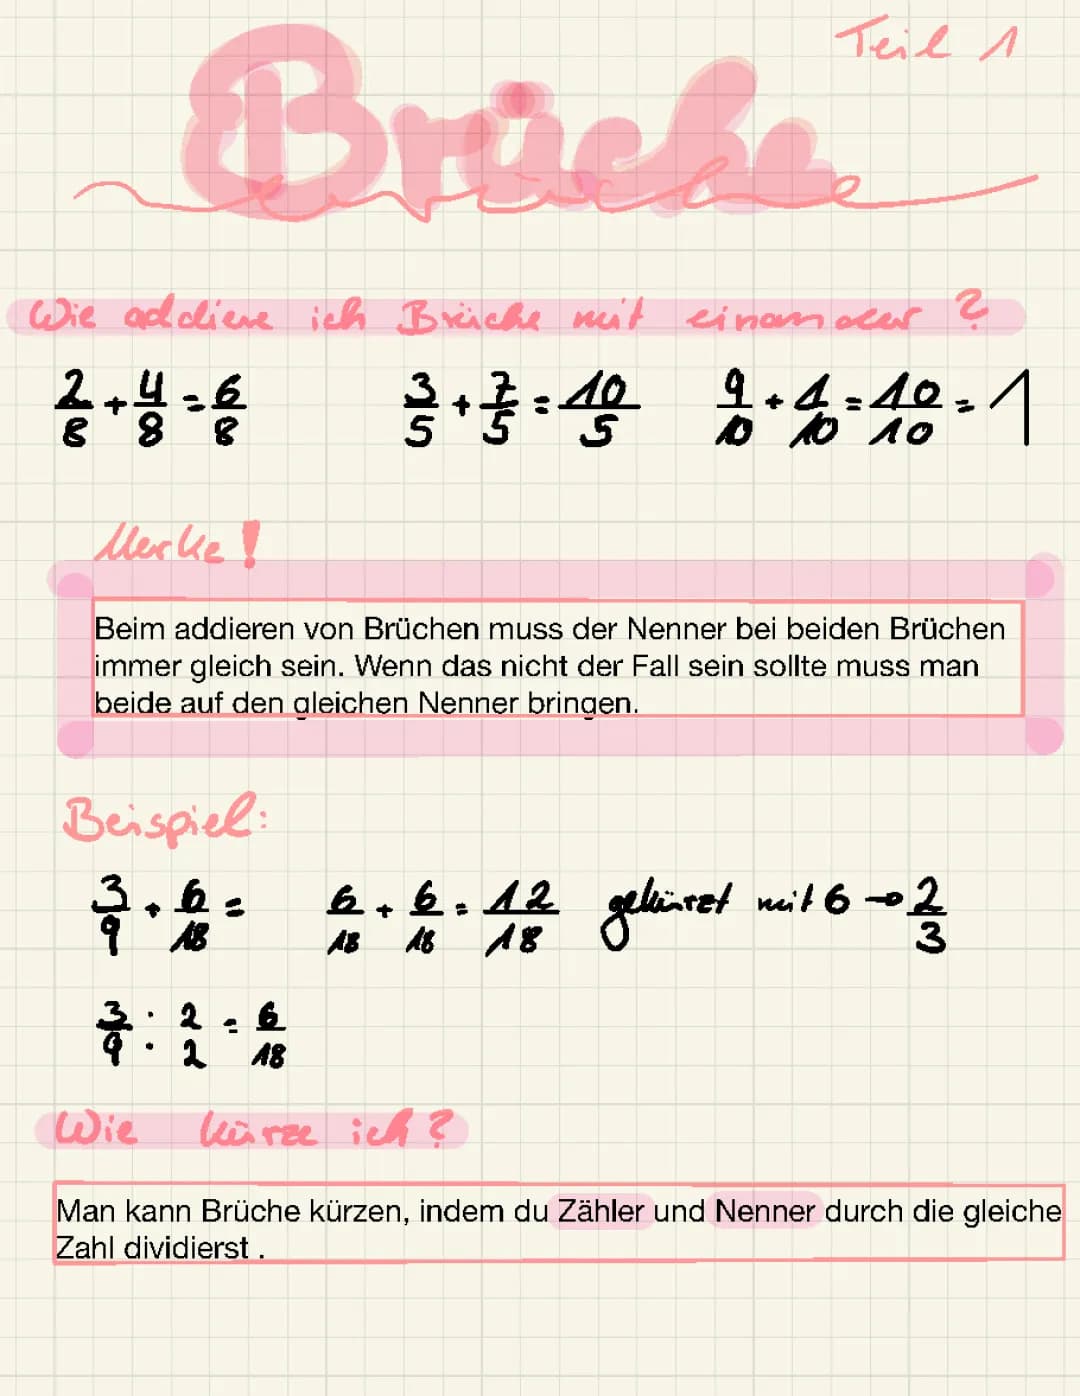 Teil 1
Brüche
Wie addiere ich Brüche mit einander ?
2/8 + 4/8 = 6/8   3/5 + 7/5 = 10/5   9/10 + 1/10 = 10/10 = 1
Merke !
Beim addieren von Brüchen muss der Nenner bei beiden Brüchen
immer gleich sein. Wenn das nicht der Fall sein sollte muss man
beide auf den gleichen Nenner bringen.
Beispiel:
3/9 + 6/18 =   6/18 + 6/18 = 12/18 gekürzt mit 6 → 2/3
3/9 : 2/2 = 6/18
Wie kürze ich ?
Man kann Brüche kürzen, indem du Zähler und Nenner durch die gleiche
Zahl dividierst .